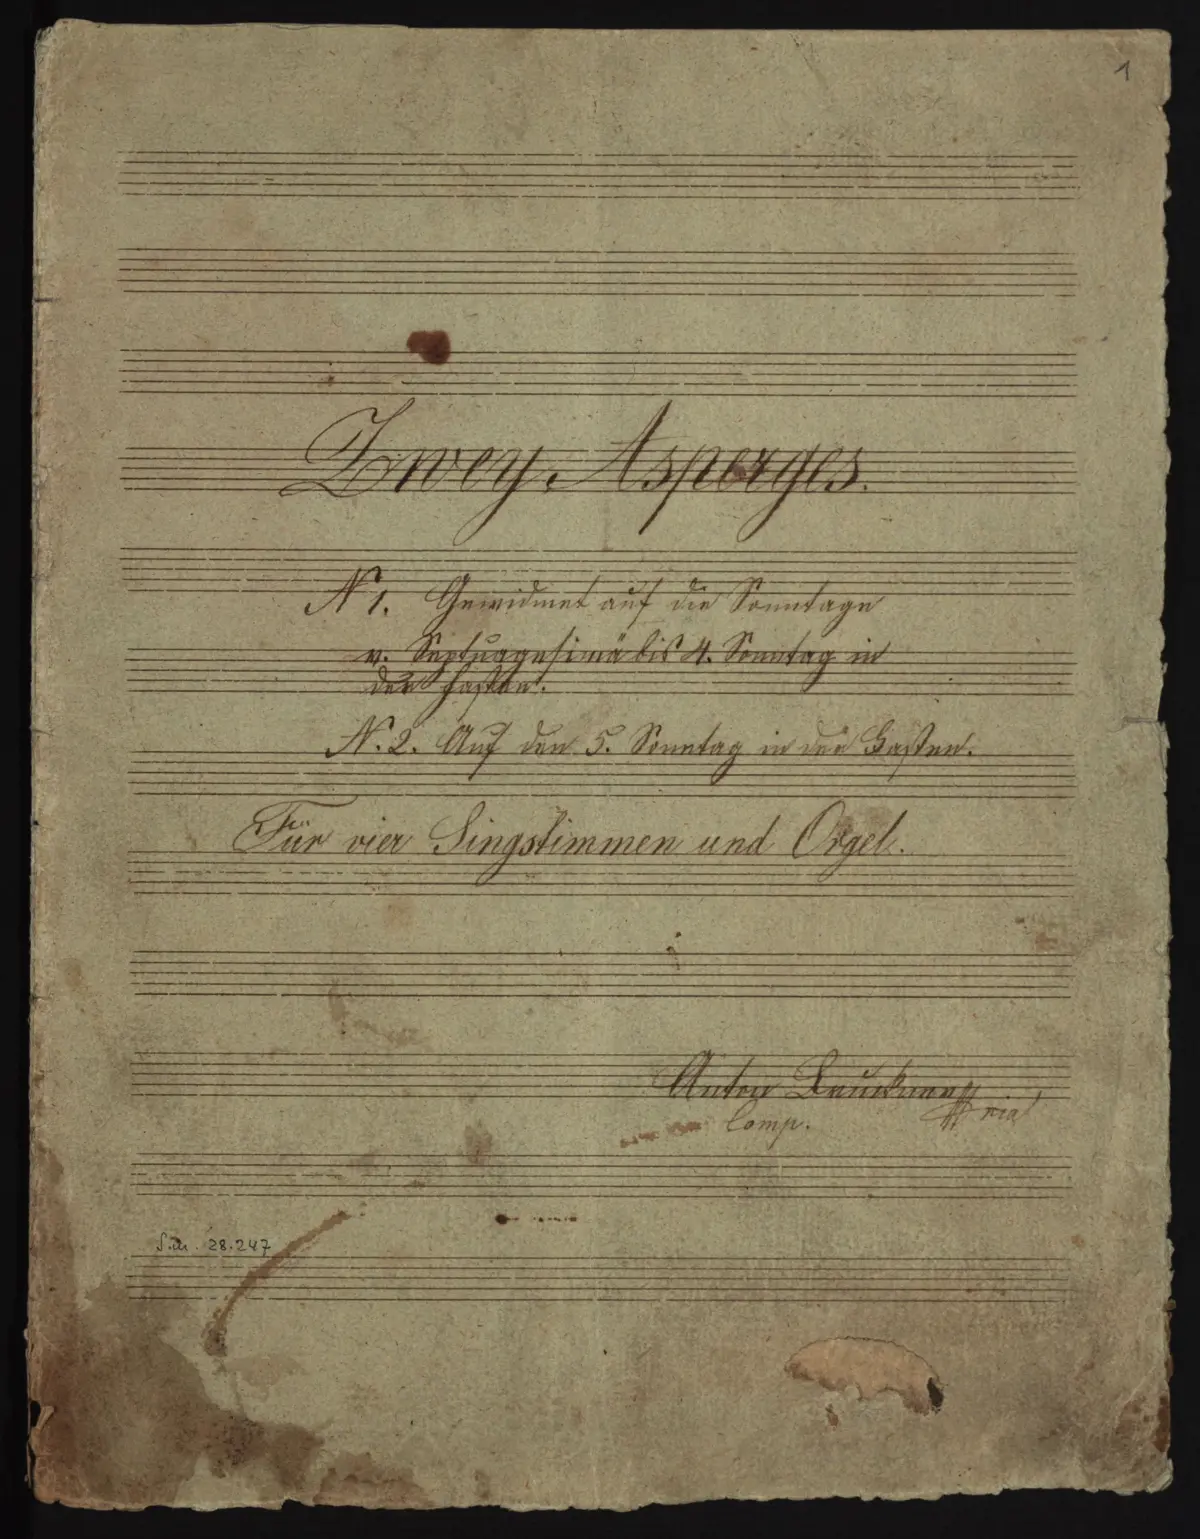 1
Zwey Asperges.
N 1. Gewidmet auf die Sonntage
v. Septuagesimä bis 4. Sonntag in
der Fasten.
N. 2. Auf den 5. Sonntag in der Fasten.
Für vier Singstimmen und Orgel.
Anton Bruckner
Comp.
S.m. 28.247